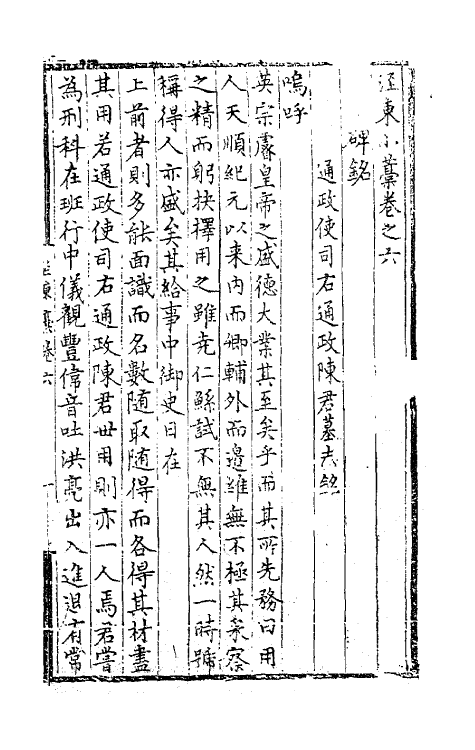 涇東小藁卷之六
碑銘
通政使司右通政陳君墓志銘
嗚呼
英宗睿皇帝之盛德大業其至矣乎而其所先務曰用
人天順紀元以来内而卿輔外而邉維無不極其衆察
之精而躬抉擇用之雖堯仁鯀試不無其人然一時號
稱得人亦盛矣其給事中御史日在
上前者則多能面識而名數随取随得而各得其材盡
其用若通政使司右通政陳君世用則亦一人焉君嘗
為刑科在班行中儀觀豐偉音吐洪亮出入進退有常
東藁卷六
一